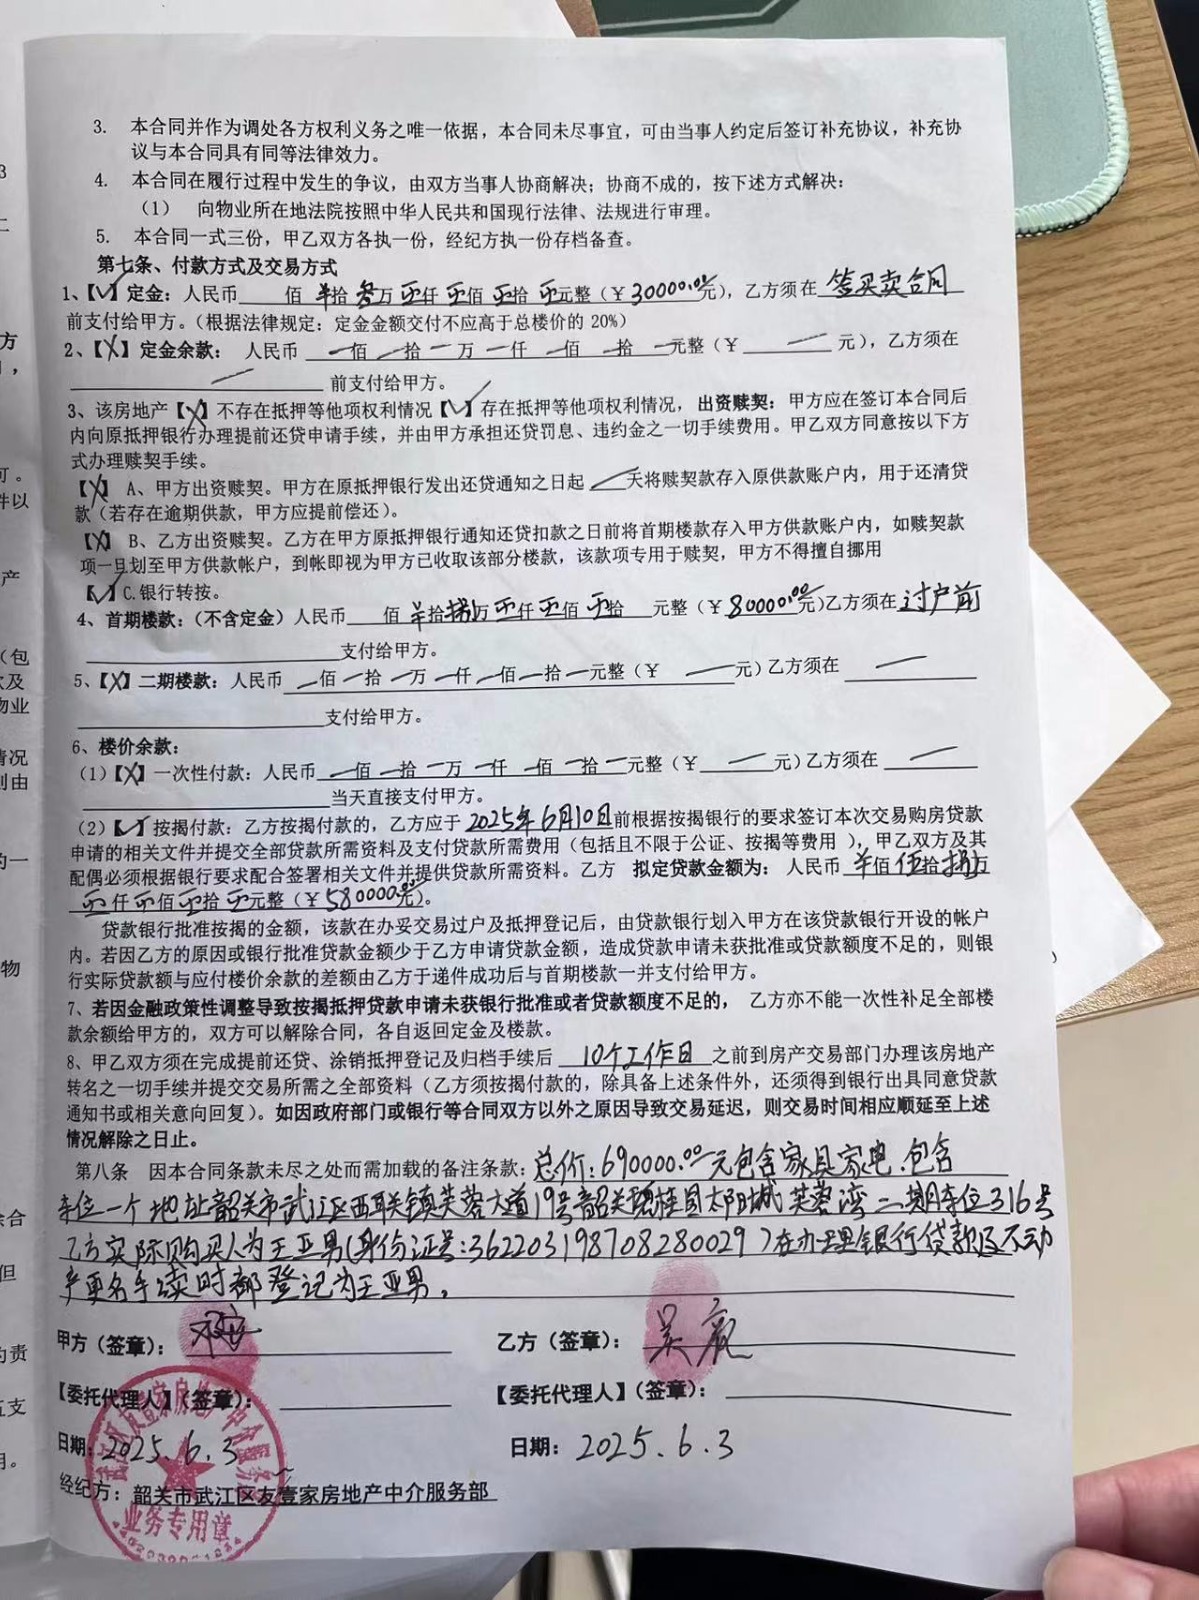 3. 本合同并作为调处各方权利义务之唯一依据，本合同未尽事宜，可由当事人约定后签订补充协议，补充协
议与本合同具有同等法律效力。
4. 本合同在履行过程中发生的争议，由双方当事人协商解决；协商不成的，按下述方式解决：
（1） 向物业所在地法院按照中华人民共和国现行法律、法规进行审理。
5. 本合同一式三份，甲乙双方各执一份，经纪方执一份存档备查。
第七条、付款方式及交易方式
1、【✓】定金：人民币 佰 拾 叁万 零仟 零佰 零拾 零元整（￥30000.00元），乙方须在 签买卖合同
前支付给甲方。（根据法律规定：定金金额交付不应高于总楼价的 20%）
2、【X】定金余款： 人民币 佰 拾 万 仟 佰 拾 元整（￥ 元），乙方须在
前支付给甲方。
3、该房地产【X】不存在抵押等他项权利情况【✓】存在抵押等他项权利情况，出资赎契：甲方应在签订本合同后
内向原抵押银行办理提前还贷申请手续，并由甲方承担还贷罚息、违约金之一切手续费用。甲乙双方同意按以下方
式办理赎契手续。
【X】 A、甲方出资赎契。甲方在原抵押银行发出还贷通知之日起 天将赎契款存入原供款账户内，用于还清贷
款（若存在逾期供款，甲方应提前偿还）。
【X】 B、乙方出资赎契。乙方在甲方原抵押银行通知还贷扣款之日前将首期楼款存入甲方供款账户内，如赎契款
项一旦划至甲方供款帐户，到帐即视为甲方已收取该部分楼款，该款项专用于赎契，甲方不得擅自挪用
【✓】C.银行转按。
4、首期楼款：（不含定金）人民币 佰 拾捌万 零仟 零佰 零拾 元整（￥80000.00元）乙方须在 过户前
支付给甲方。
5、【X】二期楼款：人民币 佰 拾 万 仟 佰 拾 元整（￥ 元）乙方须在
支付给甲方。
6、楼价余款：
（1）【X】一次性付款：人民币 佰 拾 万 仟 佰 拾 元整（￥ 元）乙方须在
当天直接支付甲方。
（2）【✓】按揭付款：乙方按揭付款的，乙方应于 2025年6月10日前根据按揭银行的要求签订本次交易购房贷款
申请的相关文件并提交全部贷款所需资料及支付贷款所需费用（包括且不限于公证、按揭等费用 ），甲乙双方及其
配偶必须根据银行要求配合签署相关文件并提供贷款所需资料。乙方 拟定贷款金额为： 人民币 佰伍拾捌万
零仟零佰零拾零元整（￥580000.00元）。
贷款银行批准按揭的金额，该款在办妥交易过户及抵押登记后，由贷款银行划入甲方在该贷款银行开设的帐户
内。若因乙方的原因或银行批准贷款金额少于乙方申请贷款金额，造成贷款申请未获批准或贷款额度不足的，则银
行实际贷款额与应付楼价余款的差额由乙方于递件成功后与首期楼款一并支付给甲方。
7、若因金融政策性调整导致按揭抵押贷款申请未获银行批准或者贷款额度不足的， 乙方亦不能一次性补足全部楼
款余额给甲方的，双方可以解除合同，各自返回定金及楼款。
8、甲乙双方须在完成提前还贷、涂销抵押登记及归档手续后 10个工作日 之前到房产交易部门办理该房地产
转名之一切手续并提交交易所需之全部资料（乙方须按揭付款的，除具备上述条件外，还须得到银行出具同意贷款
通知书或相关意向回复）。如因政府部门或银行等合同双方以外之原因导致交易延迟，则交易时间相应顺延至上述
情况解除之日止。
第八条 因本合同条款未尽之处而需加载的备注条款：总价：690000.00元包含家具家电.包含
车位一个地址韶关市武江区西联镇芙蓉大道19号韶关碧桂园太阳城芙蓉湾二期车位316号
乙方实际购买人为王亚男（身份证号：362203198708280029）在办理银行贷款及不动
产更名手续时都登记为王亚男。
甲方（签章）：
乙方（签章）： 吴
【委托代理人】（签章）：
【委托代理人】（签章）：
日期：2025.6.3
日期：2025.6.3
经纪方：韶关市武江区友壹家房地产中介服务部
武江区友壹家房地产中介服务部
业务专用章